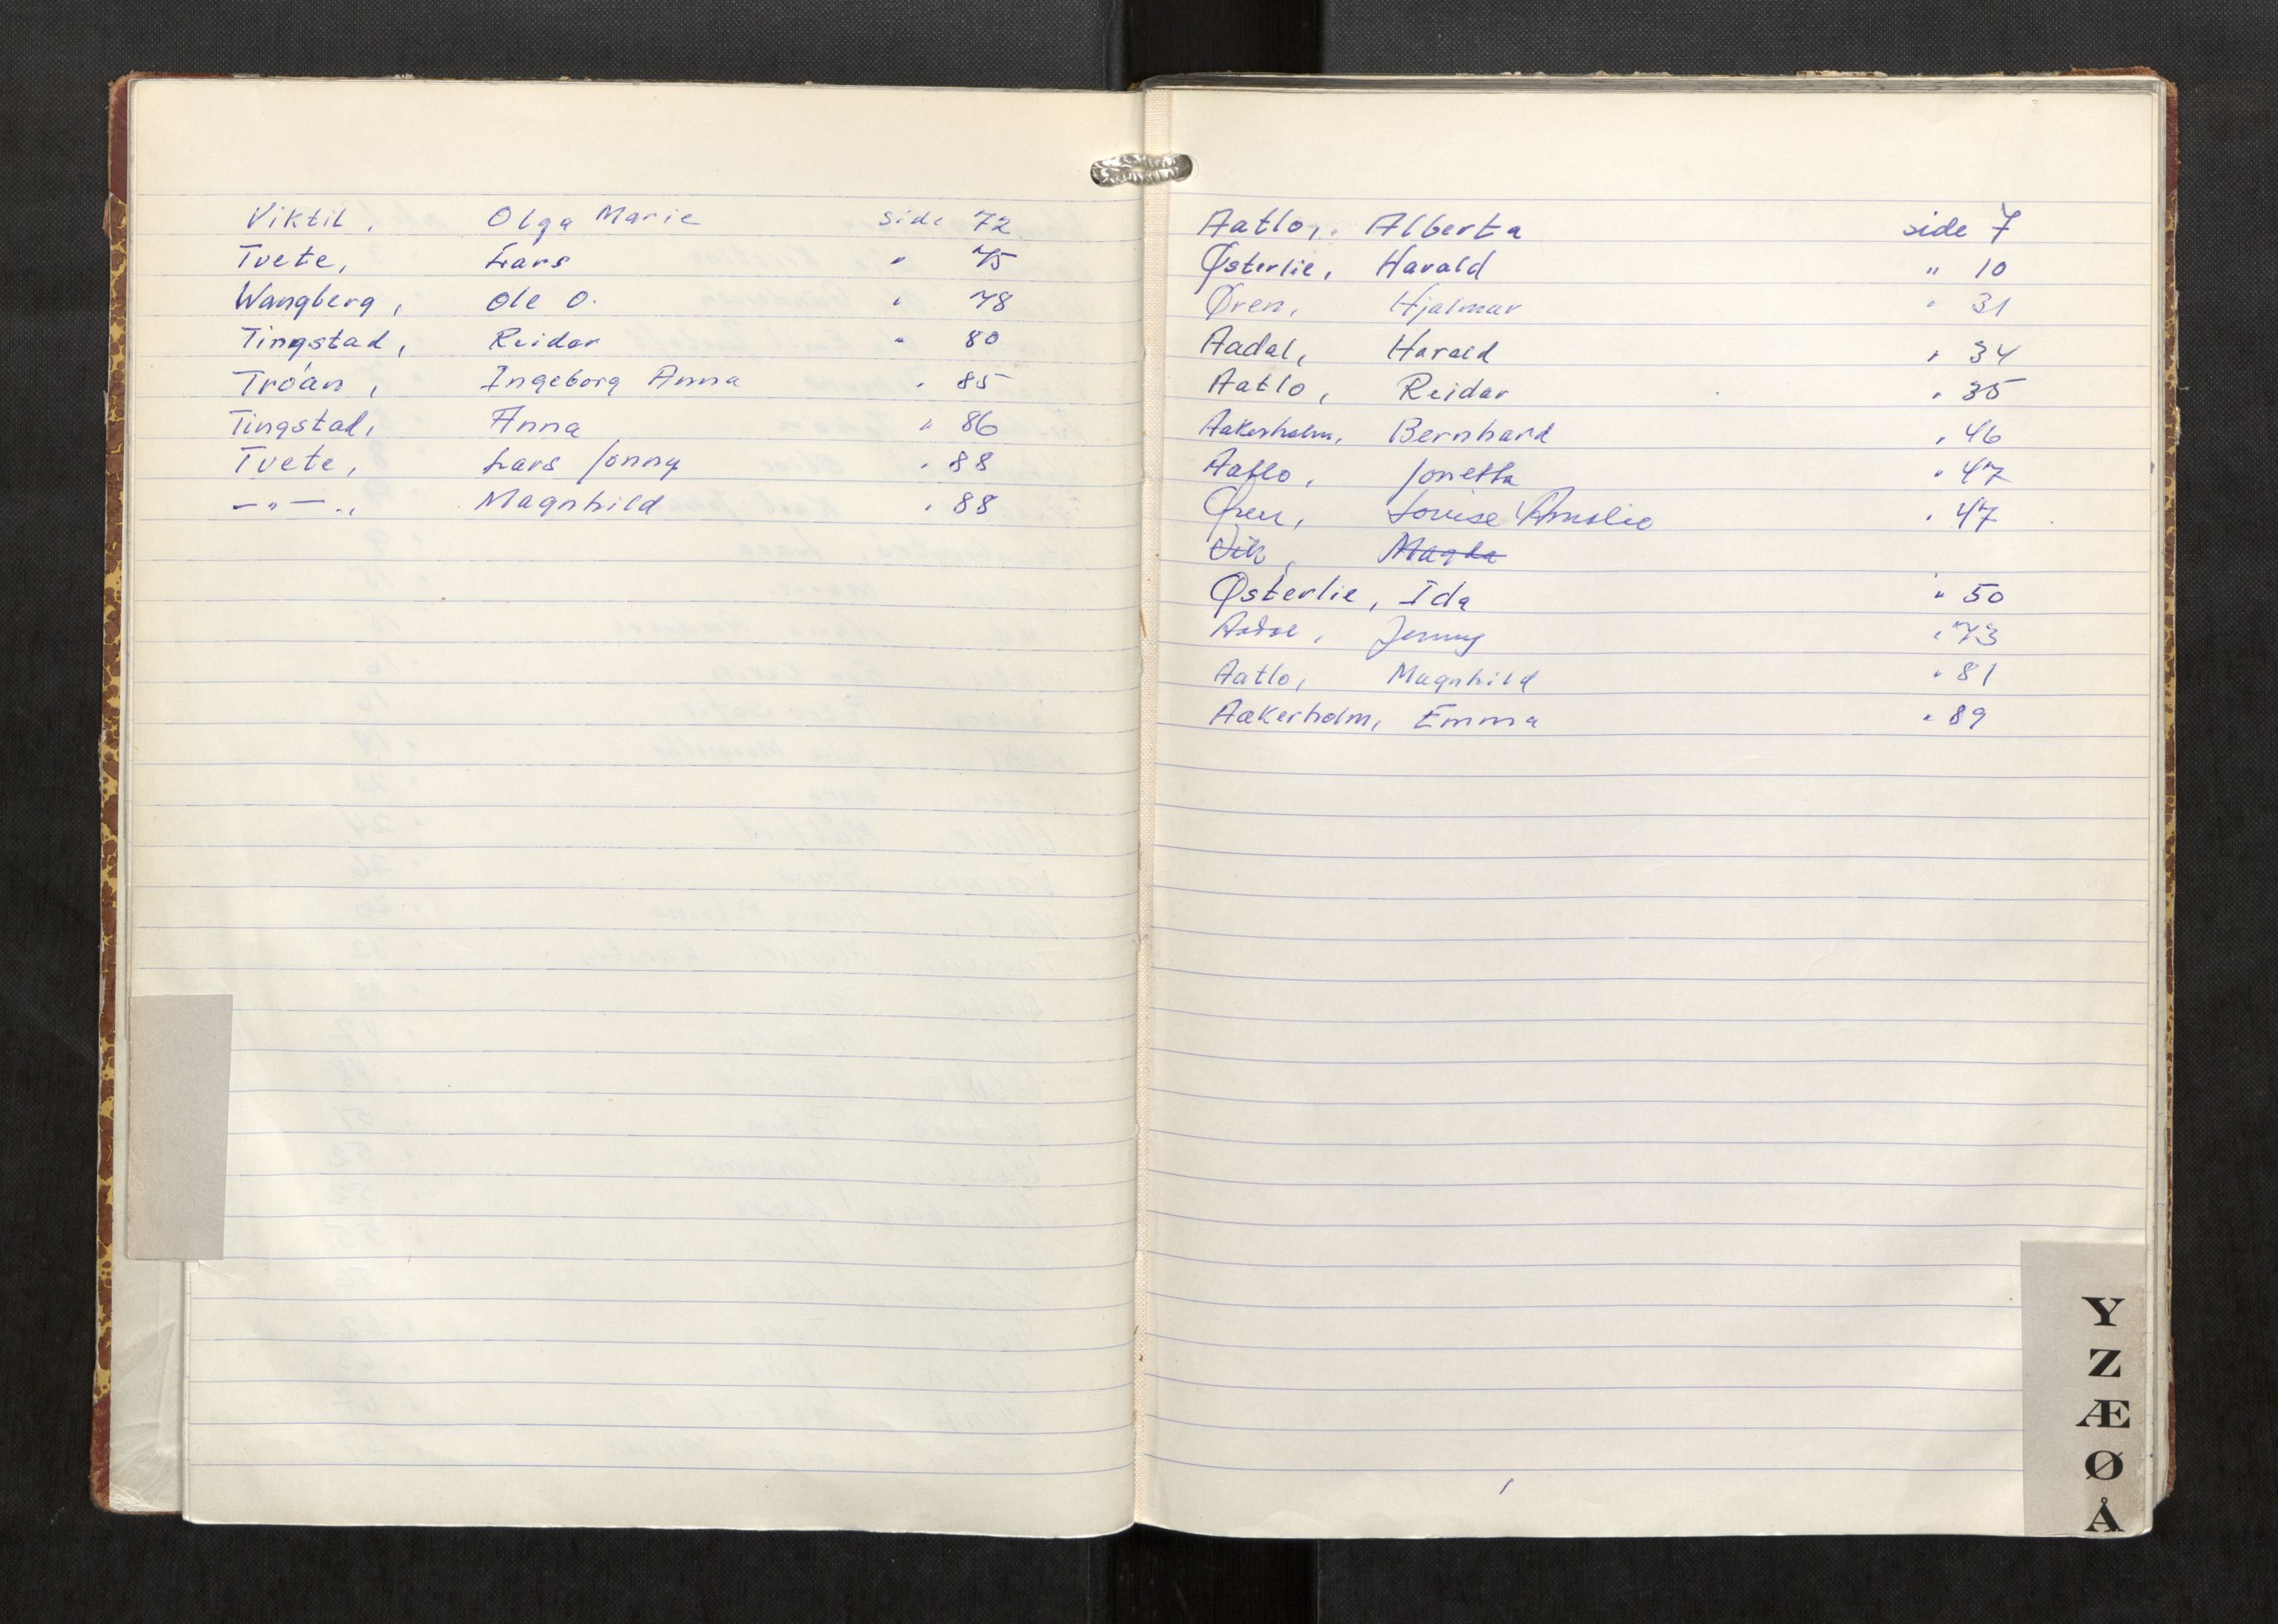 Viktil, Olga Marie side 72
Tvete, Lars " 75
Wangberg, Ole O. " 78
Tingstad, Reidar " 80
Tróan, Ingeborg Anna " 85
Tingstad, Anna " 86
Tvete, Lars Jonny " 88
—"—., Magnhild " 88
Aatlo, Alberta side 7
Østerlie, Harald " 10
Øren, Hjalmar " 31
Aadal, Harald " 34
Aatlo, Reidar " 35
Aakerholm, Bernhard " 46
Aatlo, Jonetta " 47
Øren, Lovise Amalie " 47
Vik, Magda
Østerlie, Ida " 50
Jenny " 73
Aatlo, Magnhild " 81
Aakerholm, Emma " 89
Y
Z
Æ
Ø
Å